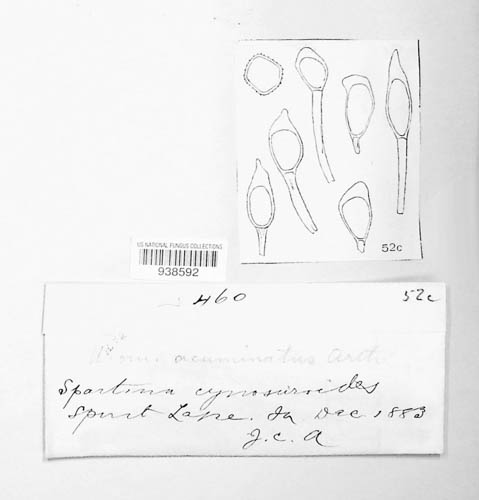 52c
US NATIONAL FUNGUS COLLECTIONS
938592
460 52c
acuminatus Arth
Spartina cynosuroides
Spirit Lake. Ia Dec 1883
J. C. A